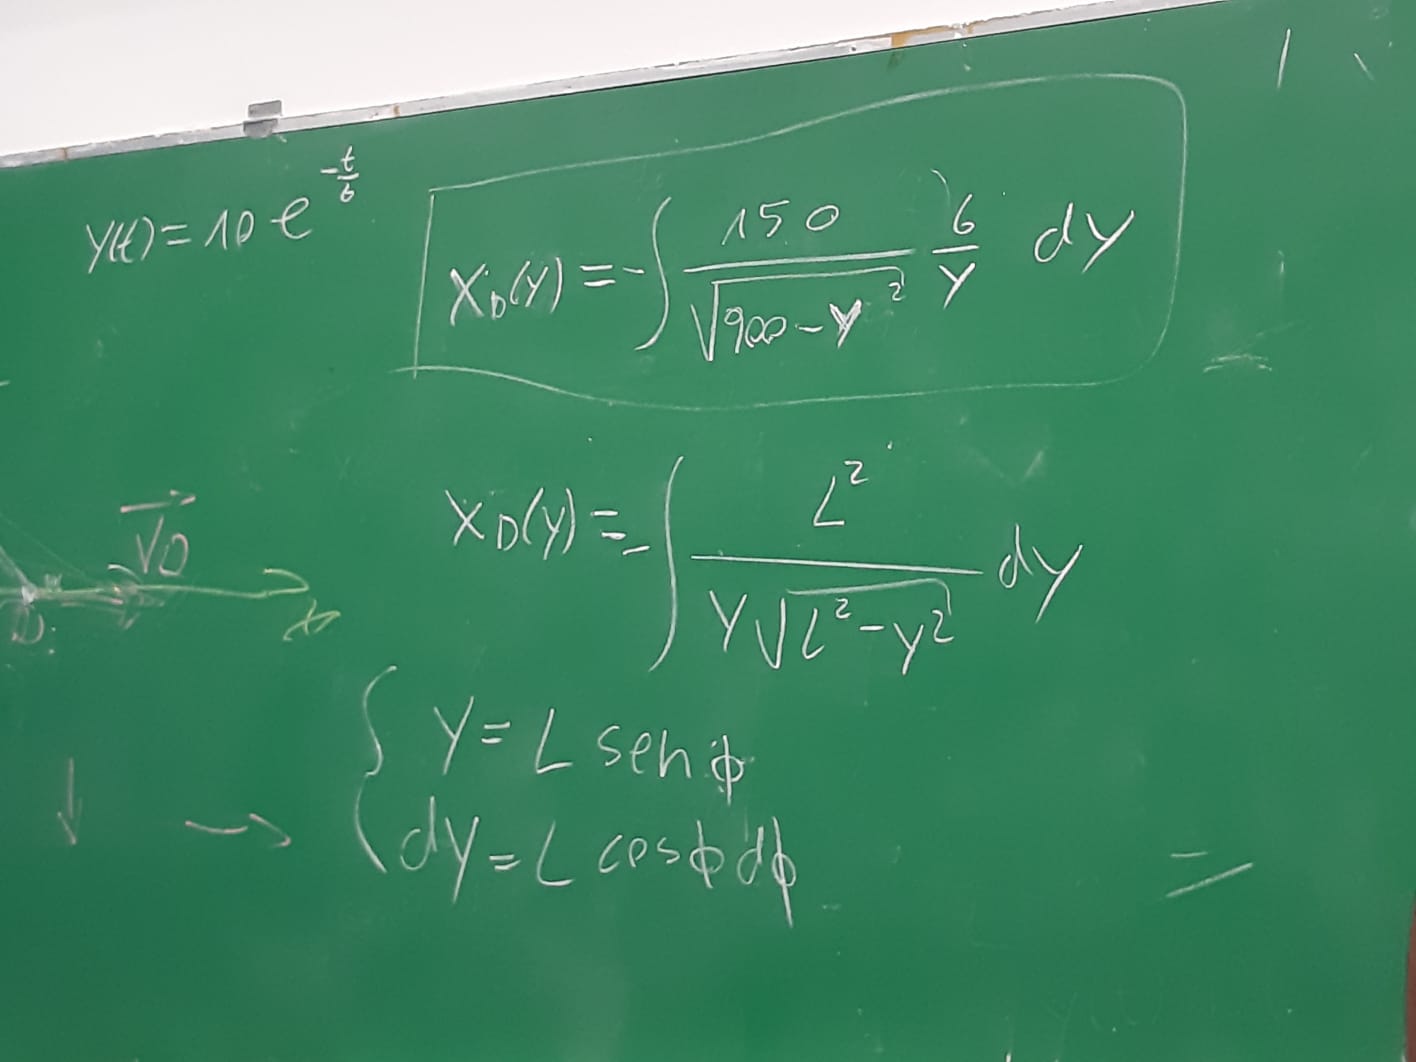 y(t) = 10 e^{-t/6}
X_D(y) = -∫ 150/√(900-y²) 6/y dy
X_D(y) = -∫ L²/(y√(L²-y²)) dy
V0
D.
x
{ y = L sen ϕ
→ dy = L cos ϕ dϕ